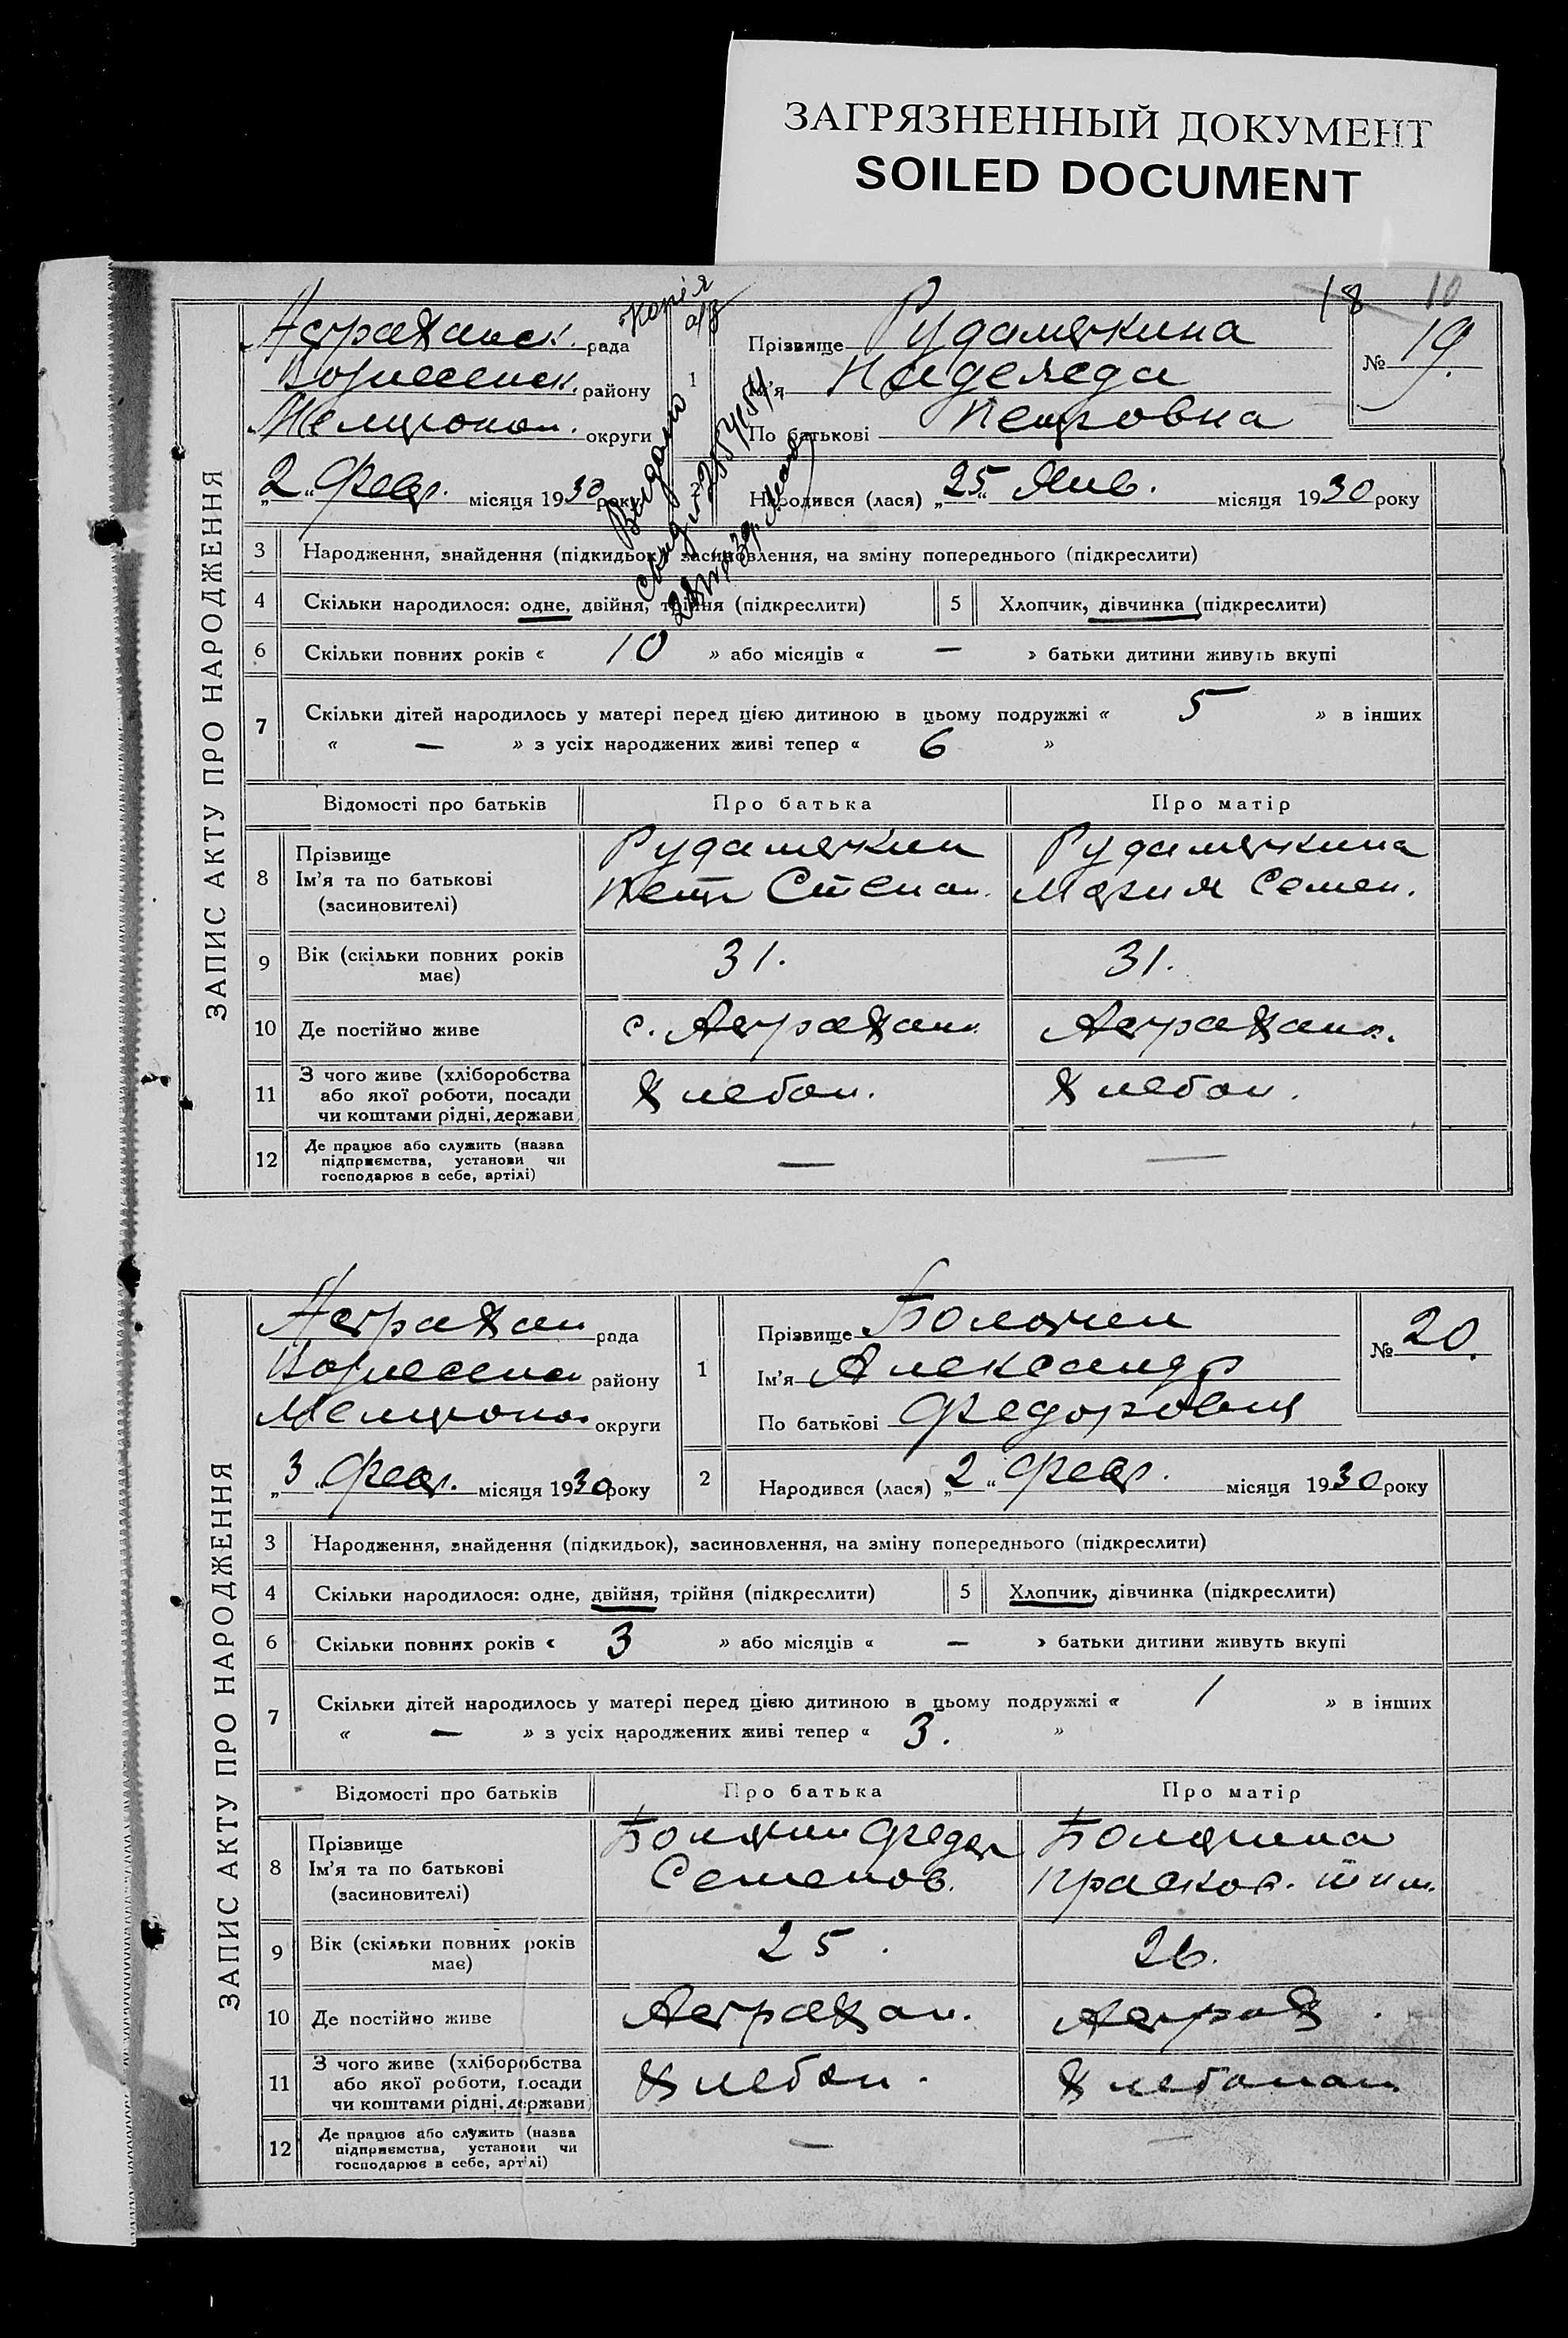 ЗАГРЯЗНЕННЫЙ ДОКУМЕНТ
SOILED DOCUMENT
18 10
ЗАПИС АКТУ ПРО НАРОДЖЕННЯ
Астраханск. рада
Вознесенск. району
Мелитопол. округи
„2“ Февр. місяця 1930 року
Копія
Видано
1
Прізвище Рудаметкина
Ім'я Надежда
По батькові Петровна
№ 19.
Народився (лася) „25“ Янв. місяця 1930 року
3 Народження, знайдення (підкидьок), засиновлення, на зміну попереднього (підкреслити)
4 Скільки народилося: одне, двійня, трійня (підкреслити) 5 Хлопчик, дівчинка (підкреслити)
6 Скільки повних років « 10 » або місяців « — » батьки дитини живуть вкупі
7 Скільки дітей народилось у матері перед цією дитиною в цьому подружжі « 5 » в інших
« — » з усіх народжених живі тепер « 6 »
Відомості про батьків Про батька Про матір
8 Прізвище Ім'я та по батькові (засиновителі) Рудаметкин Петр Степан. Рудаметкина Мария Семен.
9 Вік (скільки повних років має) 31. 31.
10 Де постійно живе с. Астрахан. Астрахан.
11 З чого живе (хліборобства або якої роботи, посади чи коштами рідні, держави) Хлебоп. Хлебоп.
12 Де працює або служить (назва підприємства, установи чи господарює в себе, артілі) — —
ЗАПИС АКТУ ПРО НАРОДЖЕННЯ
Астрахан рада
Вознесен району
Мелитопол округи
„3“ Февр. місяця 1930 року
1
Прізвище
Ім'я Александр
По батькові Федорович
№ 20.
2 Народився (лася) „2“ Февр. місяця 1930 року
3 Народження, знайдення (підкидьок), засиновлення, на зміну попереднього (підкреслити)
4 Скільки народилося: одне, двійня, трійня (підкреслити) 5 Хлопчик, дівчинка (підкреслити)
6 Скільки повних років « 3 » або місяців « — » батьки дитини живуть вкупі
7 Скільки дітей народилось у матері перед цією дитиною в цьому подружжі « 1 » в інших
« — » з усіх народжених живі тепер « 3. »
Відомості про батьків Про батька Про матір
8 Прізвище Ім'я та по батькові (засиновителі) Федор Семенов. Прасков. Тим.
9 Вік (скільки повних років має) 25. 26.
10 Де постійно живе Астрахан. Астрах.
11 З чого живе (хліборобства або якої роботи, посади чи коштами рідні, держави) Хлебоп. Хлебопаш
12 Де працює або служить (назва підприємства, установи чи господарює в себе, артілі) — —